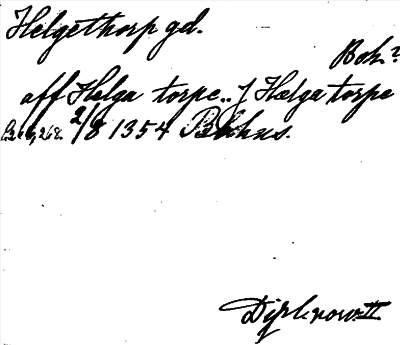 Helgethorp gd.
Boh.?
aff Helga torpe .. J Hælga torpe
2/8 1354 Bohus.
Dipl. norv. II